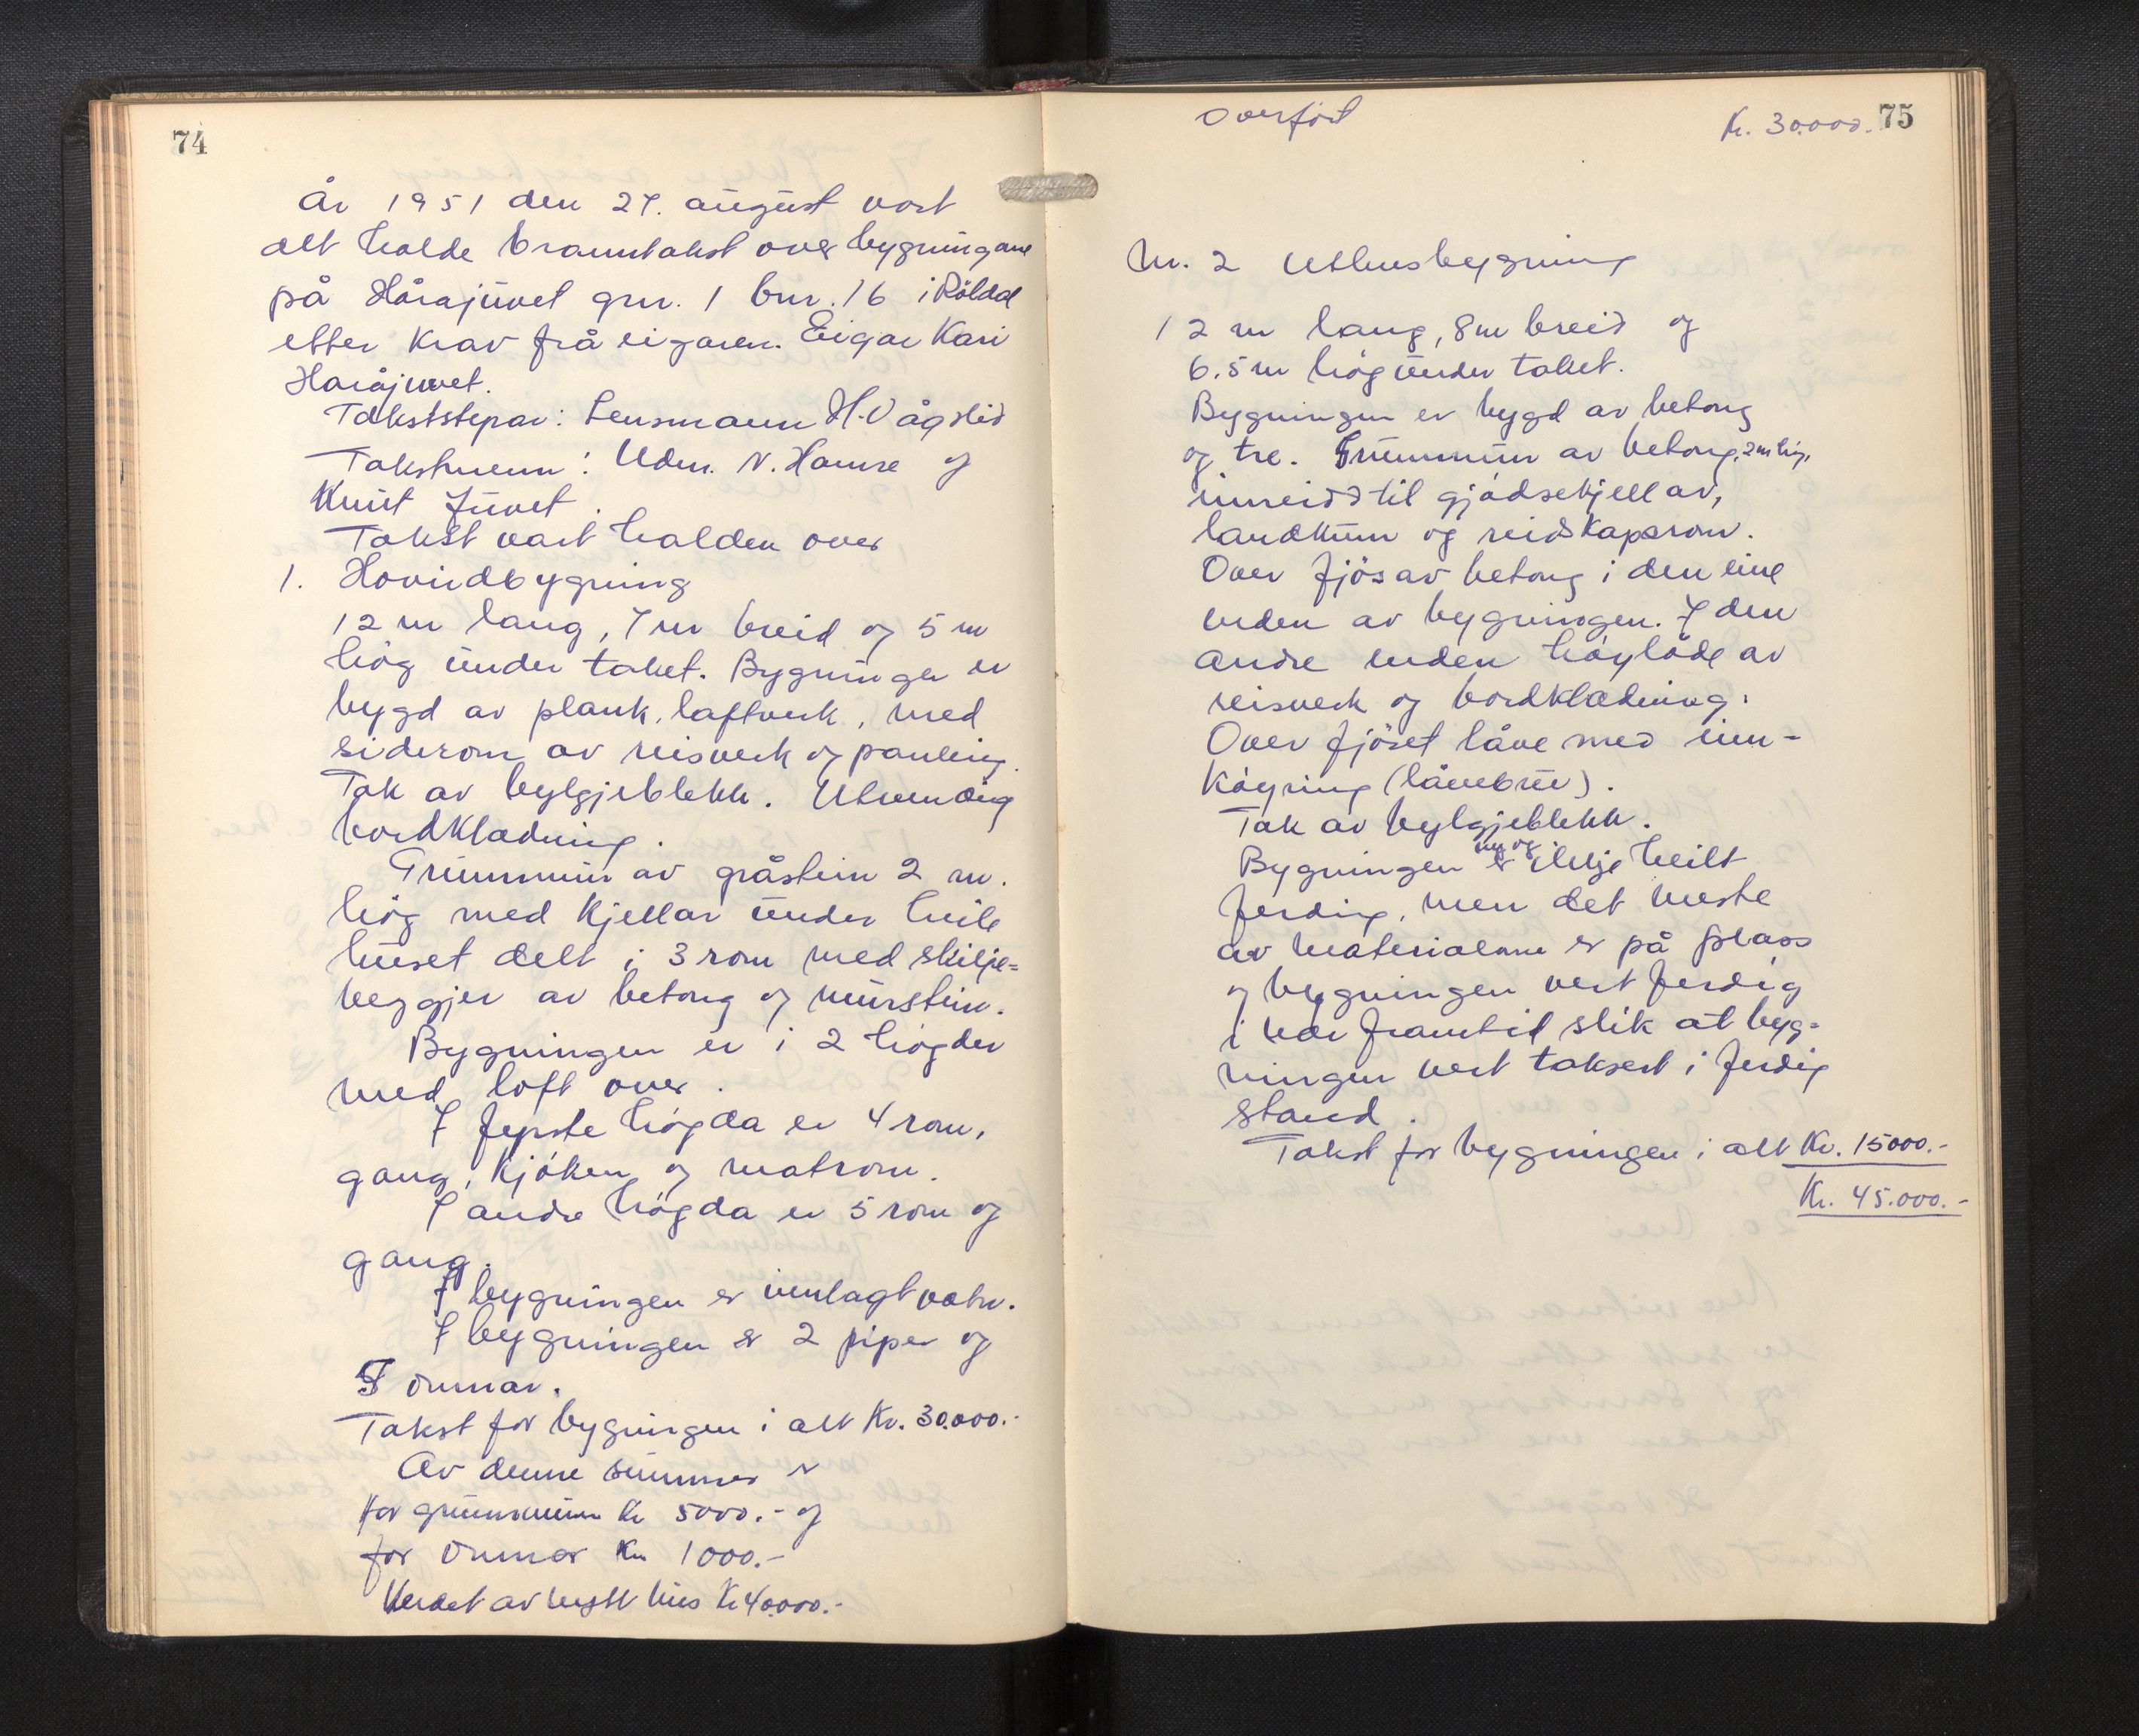 74
År 1951 den 27. august vart
det halde branntakst over bygningane
på Hårajuvet gnr. 1 bnr. 16 i Röldal
etter Krav frå eigaren. Eigar Kari
Haråjuvet.
Takststepar: Lensmann H. Vågslid
Takstmenn: Udm. N. Hamre og
Knut Juvet.
Takst vart halden over
1. Hovudbygning
12 m lang, 7 m breid og 5 m
hög under taket. Bygningen er
bygd av plank, laftverk, med
siderom av reisverk og panling.
Tak av bylgjeblekk. Utvendig
bordklædning.
Grunnmur av gråstein 2 m.
hög med Kjellar under heile
huset delt i 3 rom med skilje=
veggjer av betong og murstein.
Bygningen er i 2 högder
med loft over.
I fyrste högda er 4 rom,
gang, Kjöken og matrom.
I andre högda er 5 rom og
gang.
I bygningen er innlagt vatn.
I bygningen er 2 piper og
omnar.
Takst for bygningen i alt Kr. 30.000.-
Av denne summen er
for grunnmur Kr 5000.- og
for omnar Kr 1000.-
Verdet av nytt hus Kr 40.000.-
Overfört Kr. 30.000. 75
Nr. 2 Uthusbygning
12 m lang, 8 m breid og
6.5 m hög under taket.
Bygningen er bygd av betong
og tre. Grunnmur av betong, 2 m hög,
innreidd til gjödsekjellar,
landkum og reidskapsrom.
Over fjös av betong i den eine
enden av bygningen. I den
andre enden höylöde av
reisverk og bordklædning.
Over fjöset låve med inn-
Köyring (låvebru).
Tak av bylgjeblekk.
Bygningen er ny og ikkje heilt
ferdig, men det meste
av materialane er på plass
og bygningen vert ferdig
i nær framtid slik at byg=
ningen vert taksert i ferdig
stand.
Takst for bygningen i alt Kr. 15000.-
Kr. 45.000.-